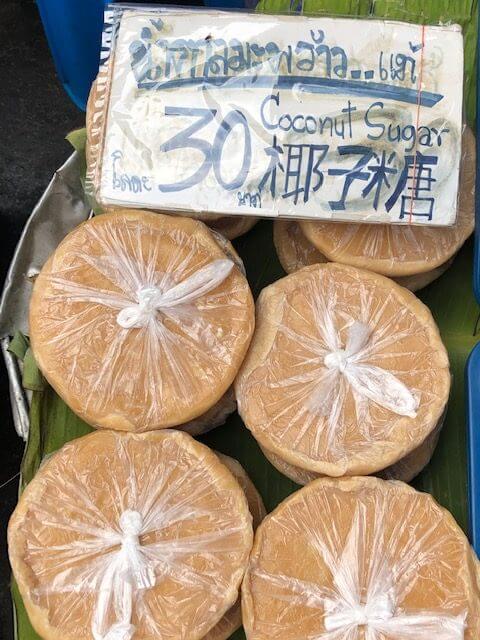 น้ำตาลมะพร้าว..แท้
Coconut Sugar
โลละ 30 บาท
椰子糖